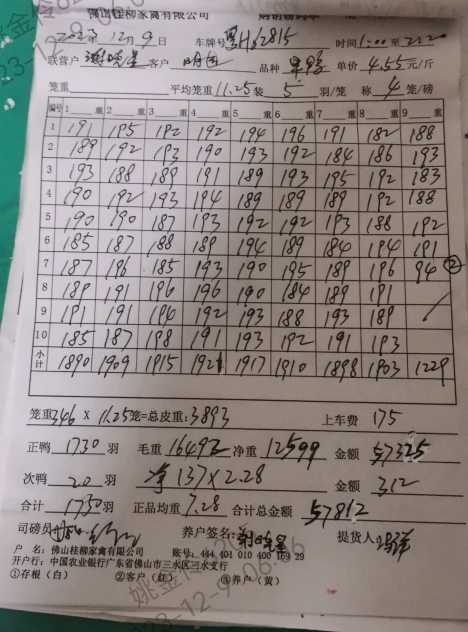 佛山桂柳家禽有限公司
2023年12月9日 车牌号 H62815 时间1:00至2:20
联营户 客户 品种 单价4.55元/斤
笼重 平均笼重11.25装5羽/笼 称4笼/磅
编号 1 重 2 重 3 重 4 重 5 重 6 重 7 重 8 重 9 重
1 191 195 192 192 194 196 191 182 188
2 189 192 193 190 193 192 184 186 193
3 193 188 189 191 189 193 195 192 183
4 190 192 193 194 189 189 189 192 188
5 190 190 187 193 192 192 193 188 192
6 185 187 188 189 194 189 184 194 191
7 187 196 185 193 190 195 189 196 94 ②
8 189 191 196 196 190 184 189 191
9 191 191 194 192 193 188 193 189
10 185 187 198 191 193 192 191 193
小计 1890 1909 1915 1921 1917 1910 1898 1903 1229
笼重346×11.25笼=总皮重:3893 上车费 175
正鸭 1730 羽 毛重 16492 净重 12599 金额 57325
次鸭 20 羽 净137×2.28 金额 312
合计 1750羽 正品均重7.28 合计总金额 57812
司磅员 养户签名: 提货人
户 名:佛山桂柳家禽有限公司 账号:444 401 010 400 169 29
开户行:中国农业银行广东省佛山市三水区三水支行
①存根(白) ②客户(红) ③养户(黄)